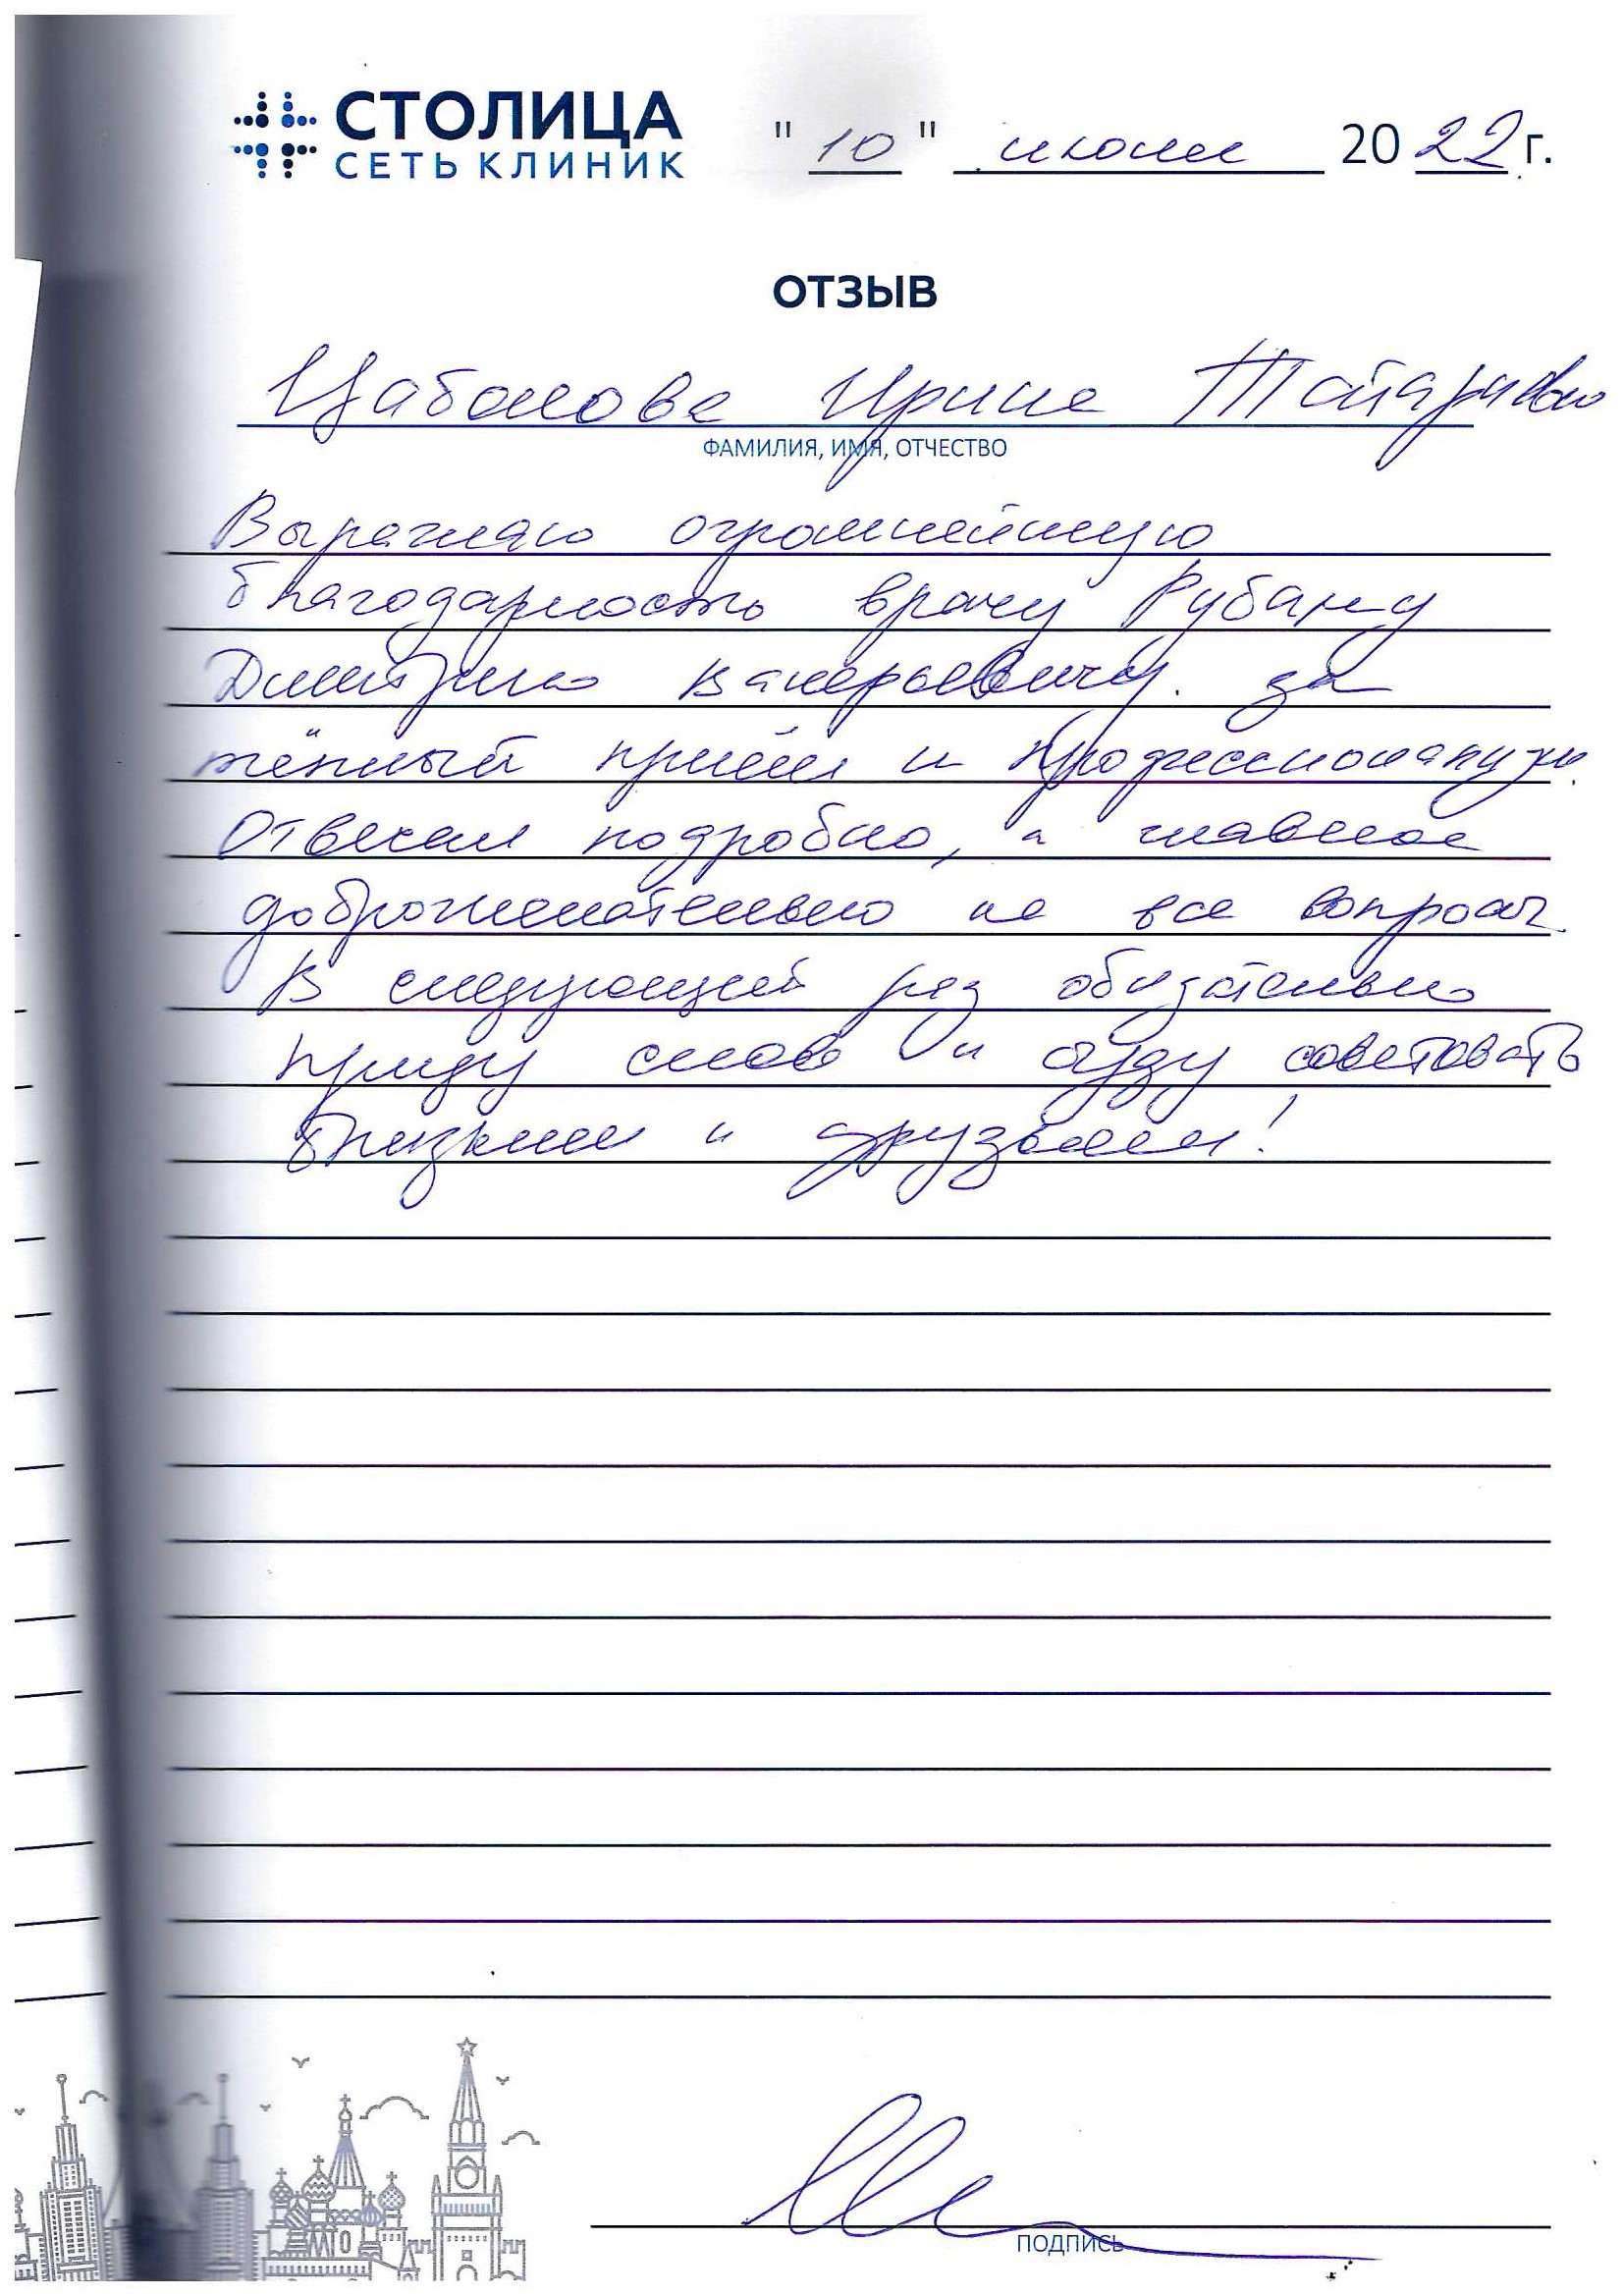 СТОЛИЦА
СЕТЬ КЛИНИК
"10" июня 2022 г.
ОТЗЫВ
Ирина
ФАМИЛИЯ, ИМЯ, ОТЧЕСТВО
Выражаю огромнейшую
благодарность врачу Рубану
Дмитрию Валерьевичу за
тёплый приём и профессионализм.
Отвечал подробно, а главное
доброжелательно на все вопросы.
В следующий раз обязательно
приду снова и буду советовать
близким и друзьям!
ПОДПИСЬ